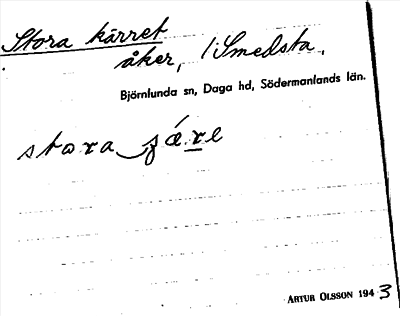 Stora kärret
åker, i Smedsta.
Björnlunda sn, Daga hd, Södermanlands län.
stora
ARTUR OLSSON 1943